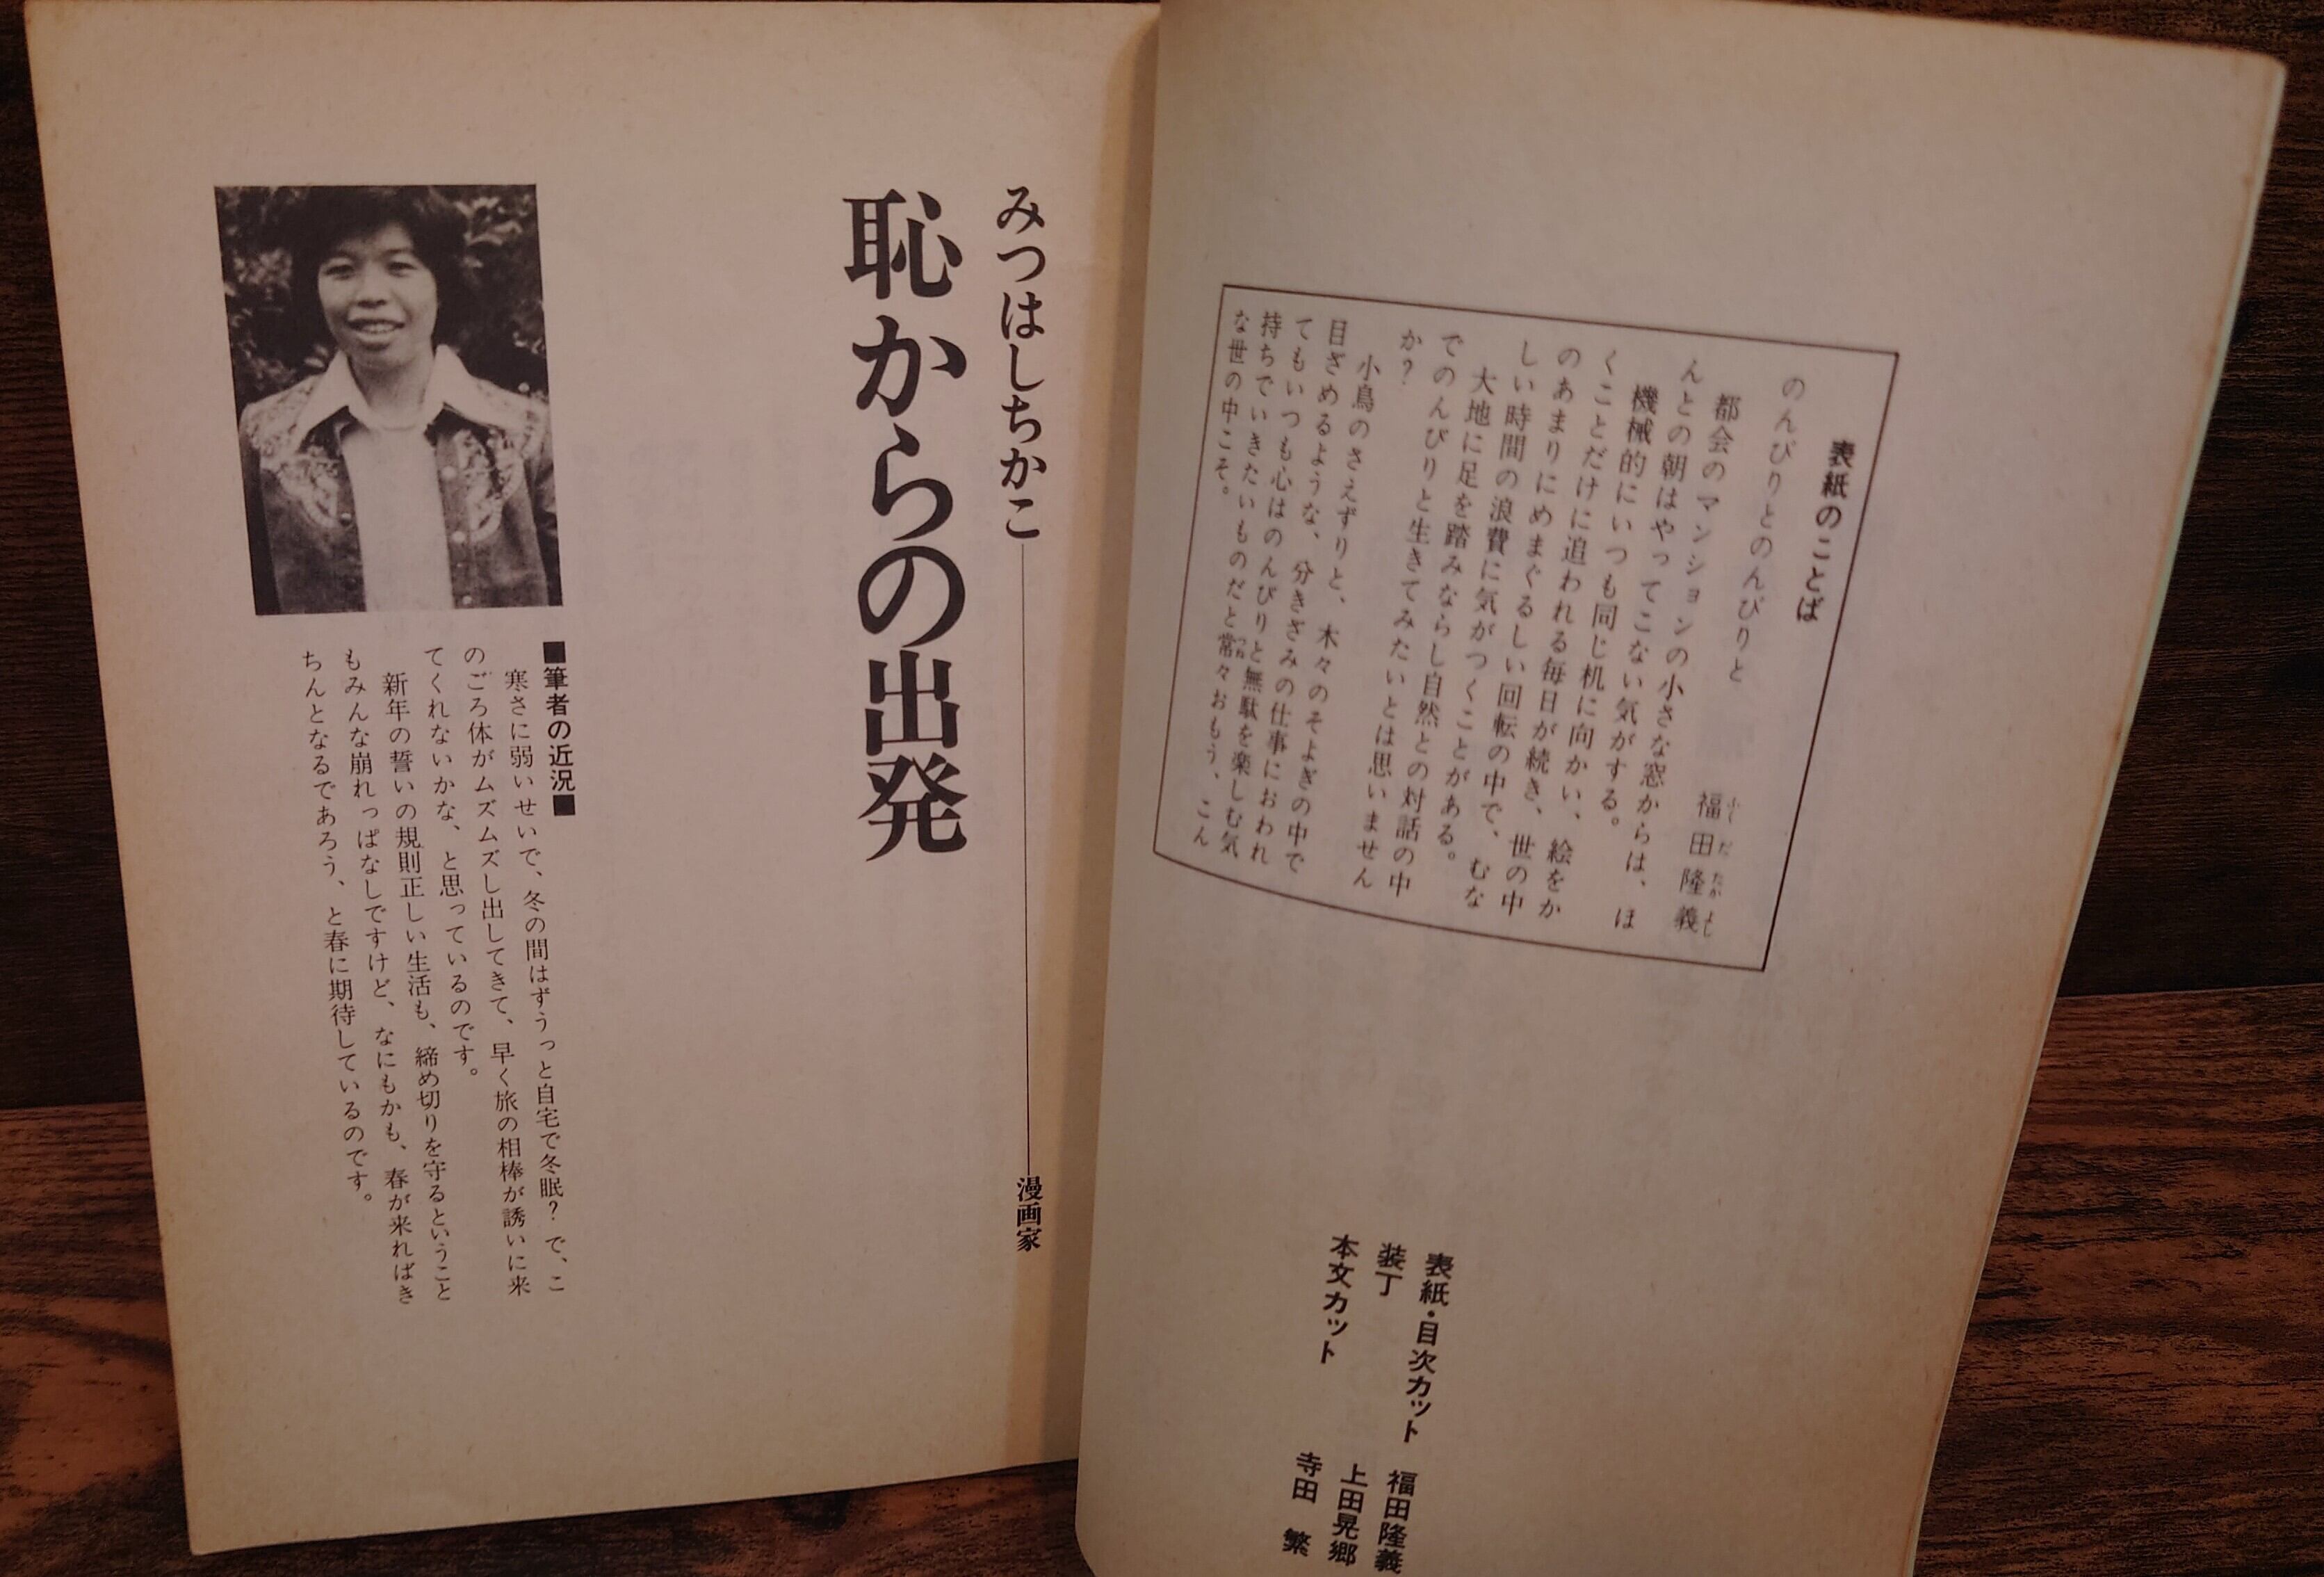 表紙のことば
のんびりとのんびりと
福田隆義
ふくだたかよし
都会のマンションの小さな窓からは、ほ
んとの朝はやってこない気がする。
機械的にいつも同じ机に向かい、絵をか
くことだけに追われる毎日が続き、世の中
のあまりにめまぐるしい回転の中で、むな
しい時間の浪費に気がつくことがある。
大地に足を踏みならし自然との対話の中
でのんびりと生きてみたいとは思いません
か?
小鳥のさえずりと、木々のそよぎの中で
目ざめるような、分きざみの仕事におわれ
てもいつも心はのんびりと無駄を楽しむ気
持ちでいきたいものだと常々おもう、こん
つね
な世の中こそ。
表紙・目次カット 福田隆義
装丁 上田晃郷
本文カット 寺田 繁
みつはしちかこ 漫画家
恥からの出発
■筆者の近況■
寒さに弱いせいで、冬の間はずうっと自宅で冬眠?で、こ
のごろ体がムズムズし出してきて、早く旅の相棒が誘いに来
てくれないかな、と思っているのです。
新年の誓いの規則正しい生活も、締め切りを守るということ
もみんな崩れっぱなしですけど、なにもかも、春が来ればき
ちんとなるであろう、と春に期待しているのです。